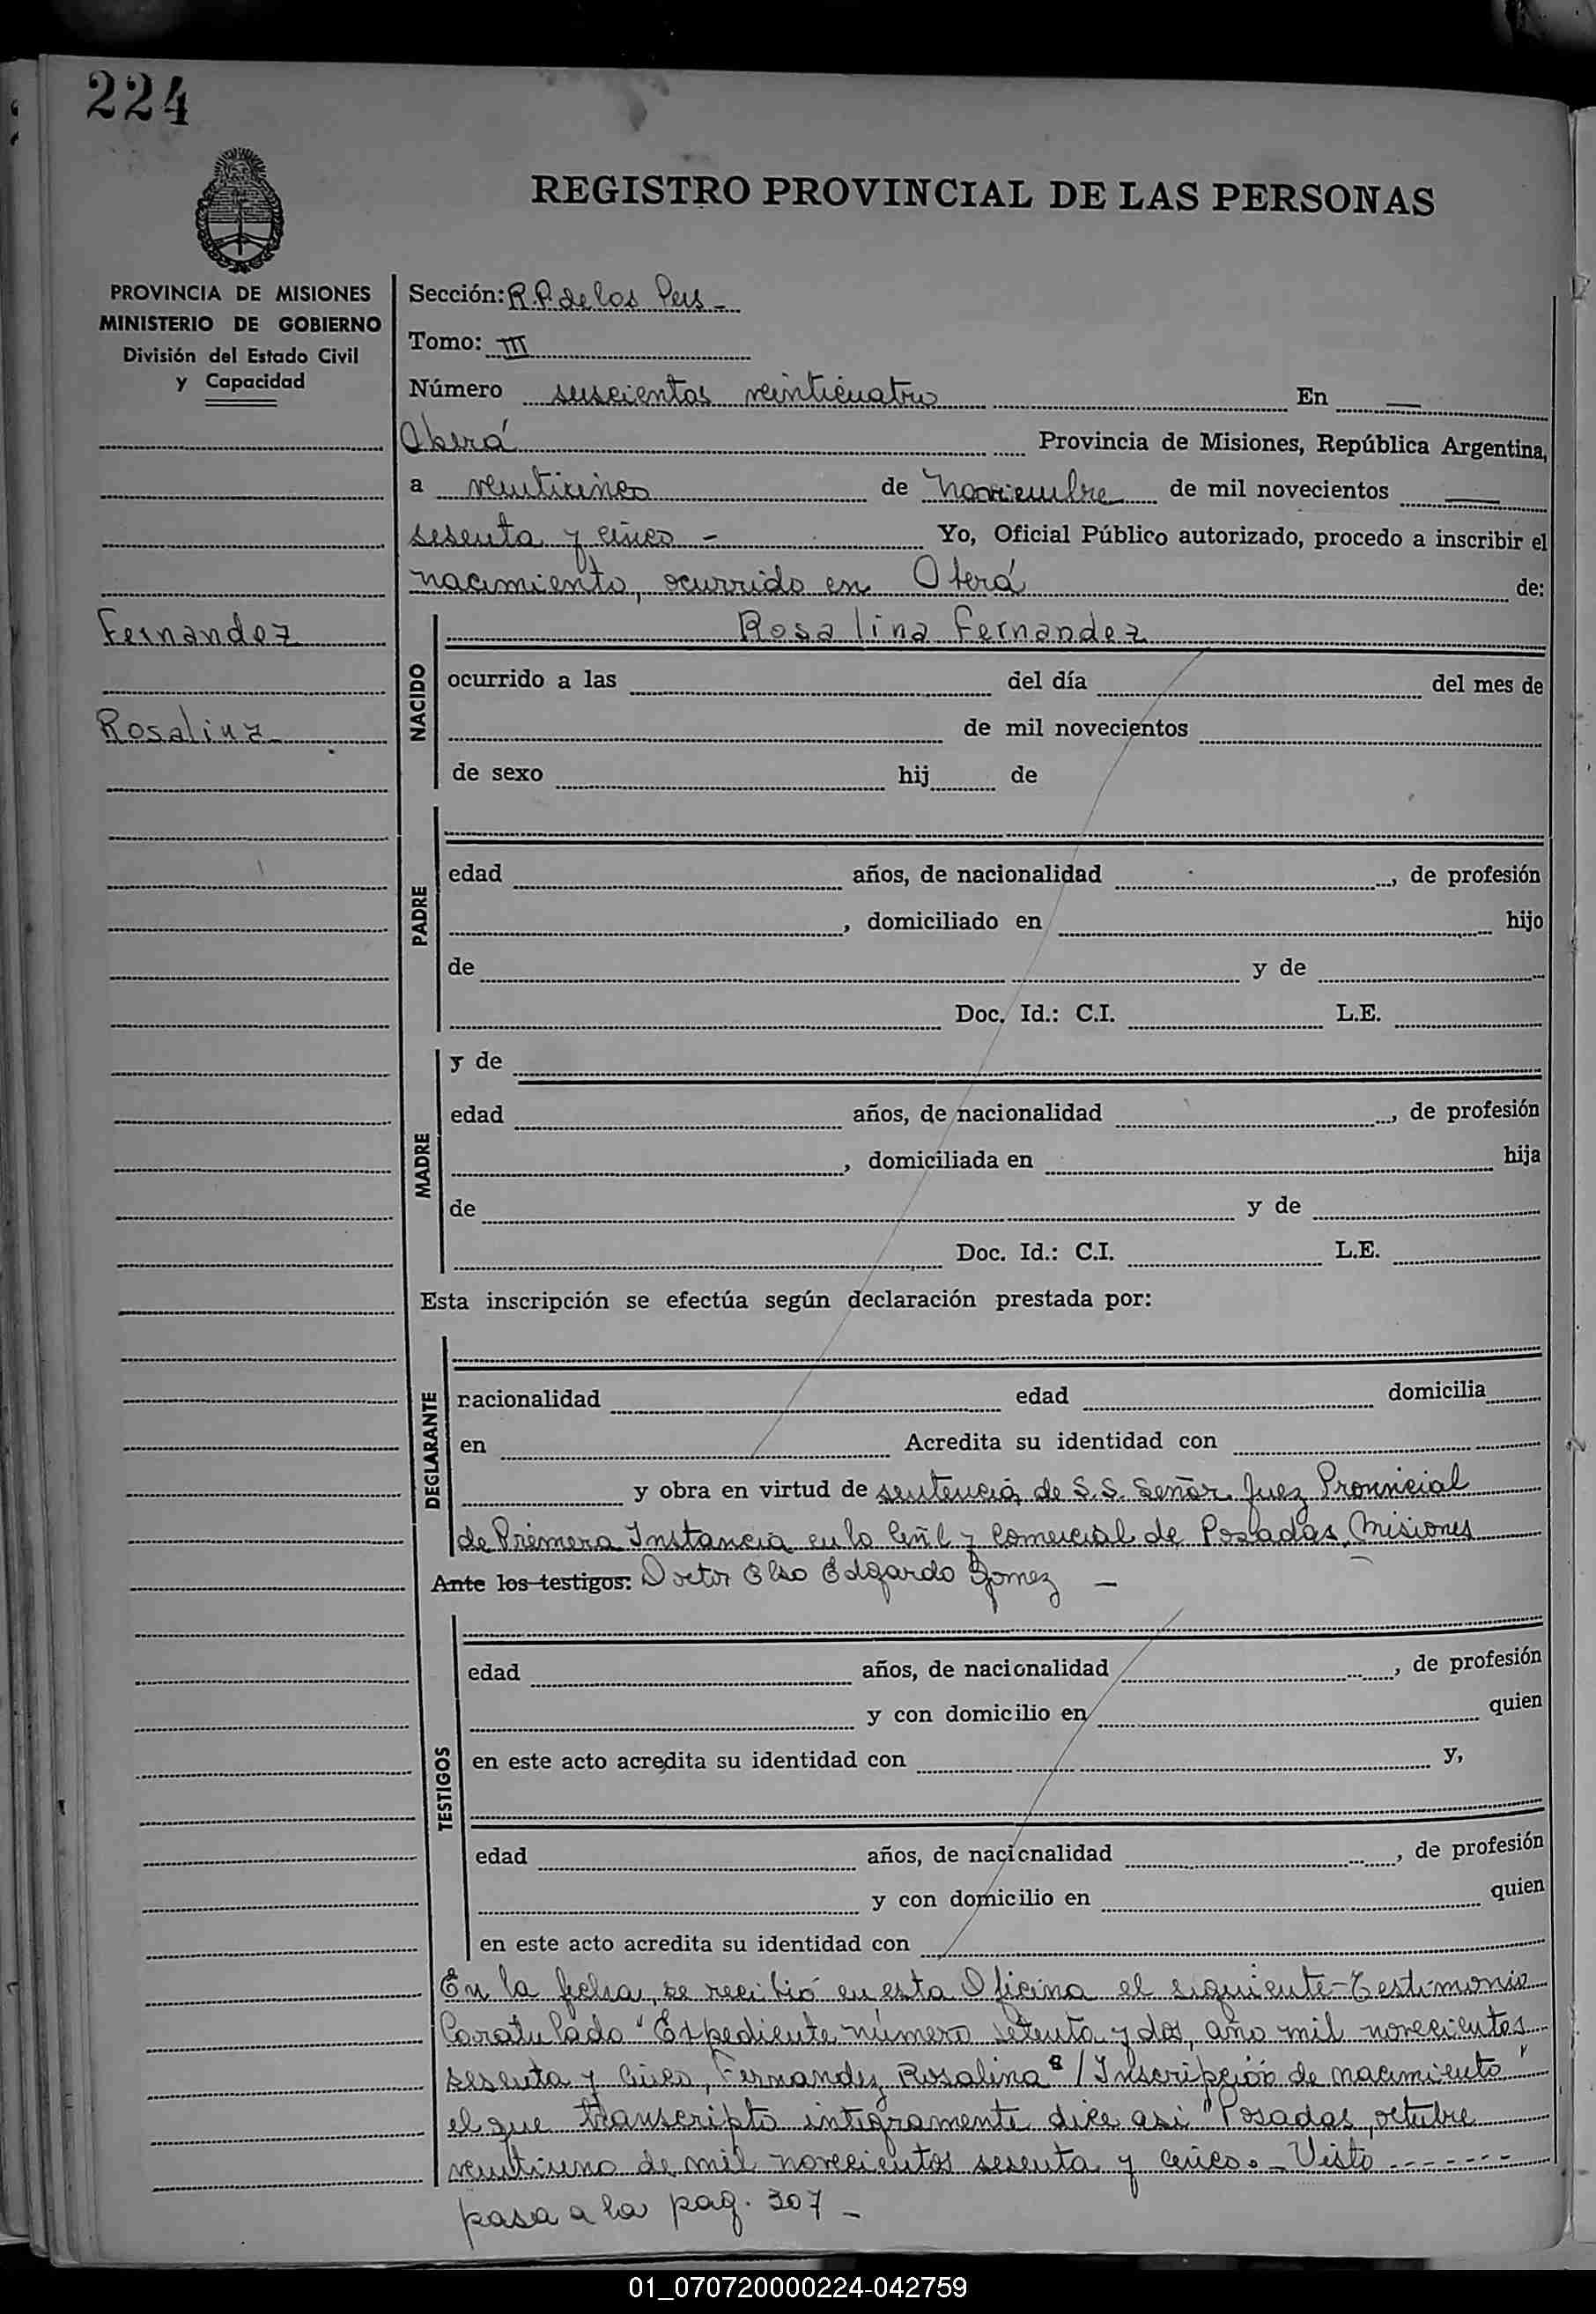 224
REGISTRO PROVINCIAL DE LAS PERSONAS
PROVINCIA DE MISIONES
MINISTERIO DE GOBIERNO
División del Estado Civil
y Capacidad
Sección: R.P. de las Pers -
Tomo: III
Número veinticuatro En —
Oberá Provincia de Misiones, República Argentina,
a veinticinco de noviembre de mil novecientos —
sesenta y cinco - Yo, Oficial Público autorizado, procedo a inscribir el
nacimiento, ocurrido en Oberá de:
Fernandez
Rosalina
NACIDO
Rosalina Fernandez
ocurrido a las del día del mes de
de mil novecientos
de sexo hij de
PADRE
edad años, de nacionalidad , de profesión
, domiciliado en hijo
de y de
Doc. Id.: C.I. L.E.
MADRE
y de
edad años, de nacionalidad , de profesión
, domiciliada en hija
de y de
Doc. Id.: C.I. L.E.
Esta inscripción se efectúa según declaración prestada por:
DEGLARANTE
racionalidad edad domicilia
en Acredita su identidad con
y obra en virtud de sentencia de S.S. Señor Juez Provincial
de Primera Instancia en lo Civil y Comercial de Posadas, Misiones
Ante los testigos: Doctor Elso Edgardo Gomez —
TESTIGOS
edad años, de nacionalidad , de profesión
y con domicilio en quien
en este acto acredita su identidad con y,
edad años, de nacionalidad , de profesión
y con domicilio en quien
en este acto acredita su identidad con
En la fecha, se recibió en esta Oficina el siguiente - Testimonio
Caratulado "Expediente número setenta y dos, año mil novecientos
sesenta y cinco, Fernandez Rosalina s/Inscripción de nacimiento"
el que transcripto integramente dice asi "Posadas, octubre
veintiuno de mil novecientos sesenta y cinco. - Visto -------
pasa a la pag. 307 -
01_070720000224-042759